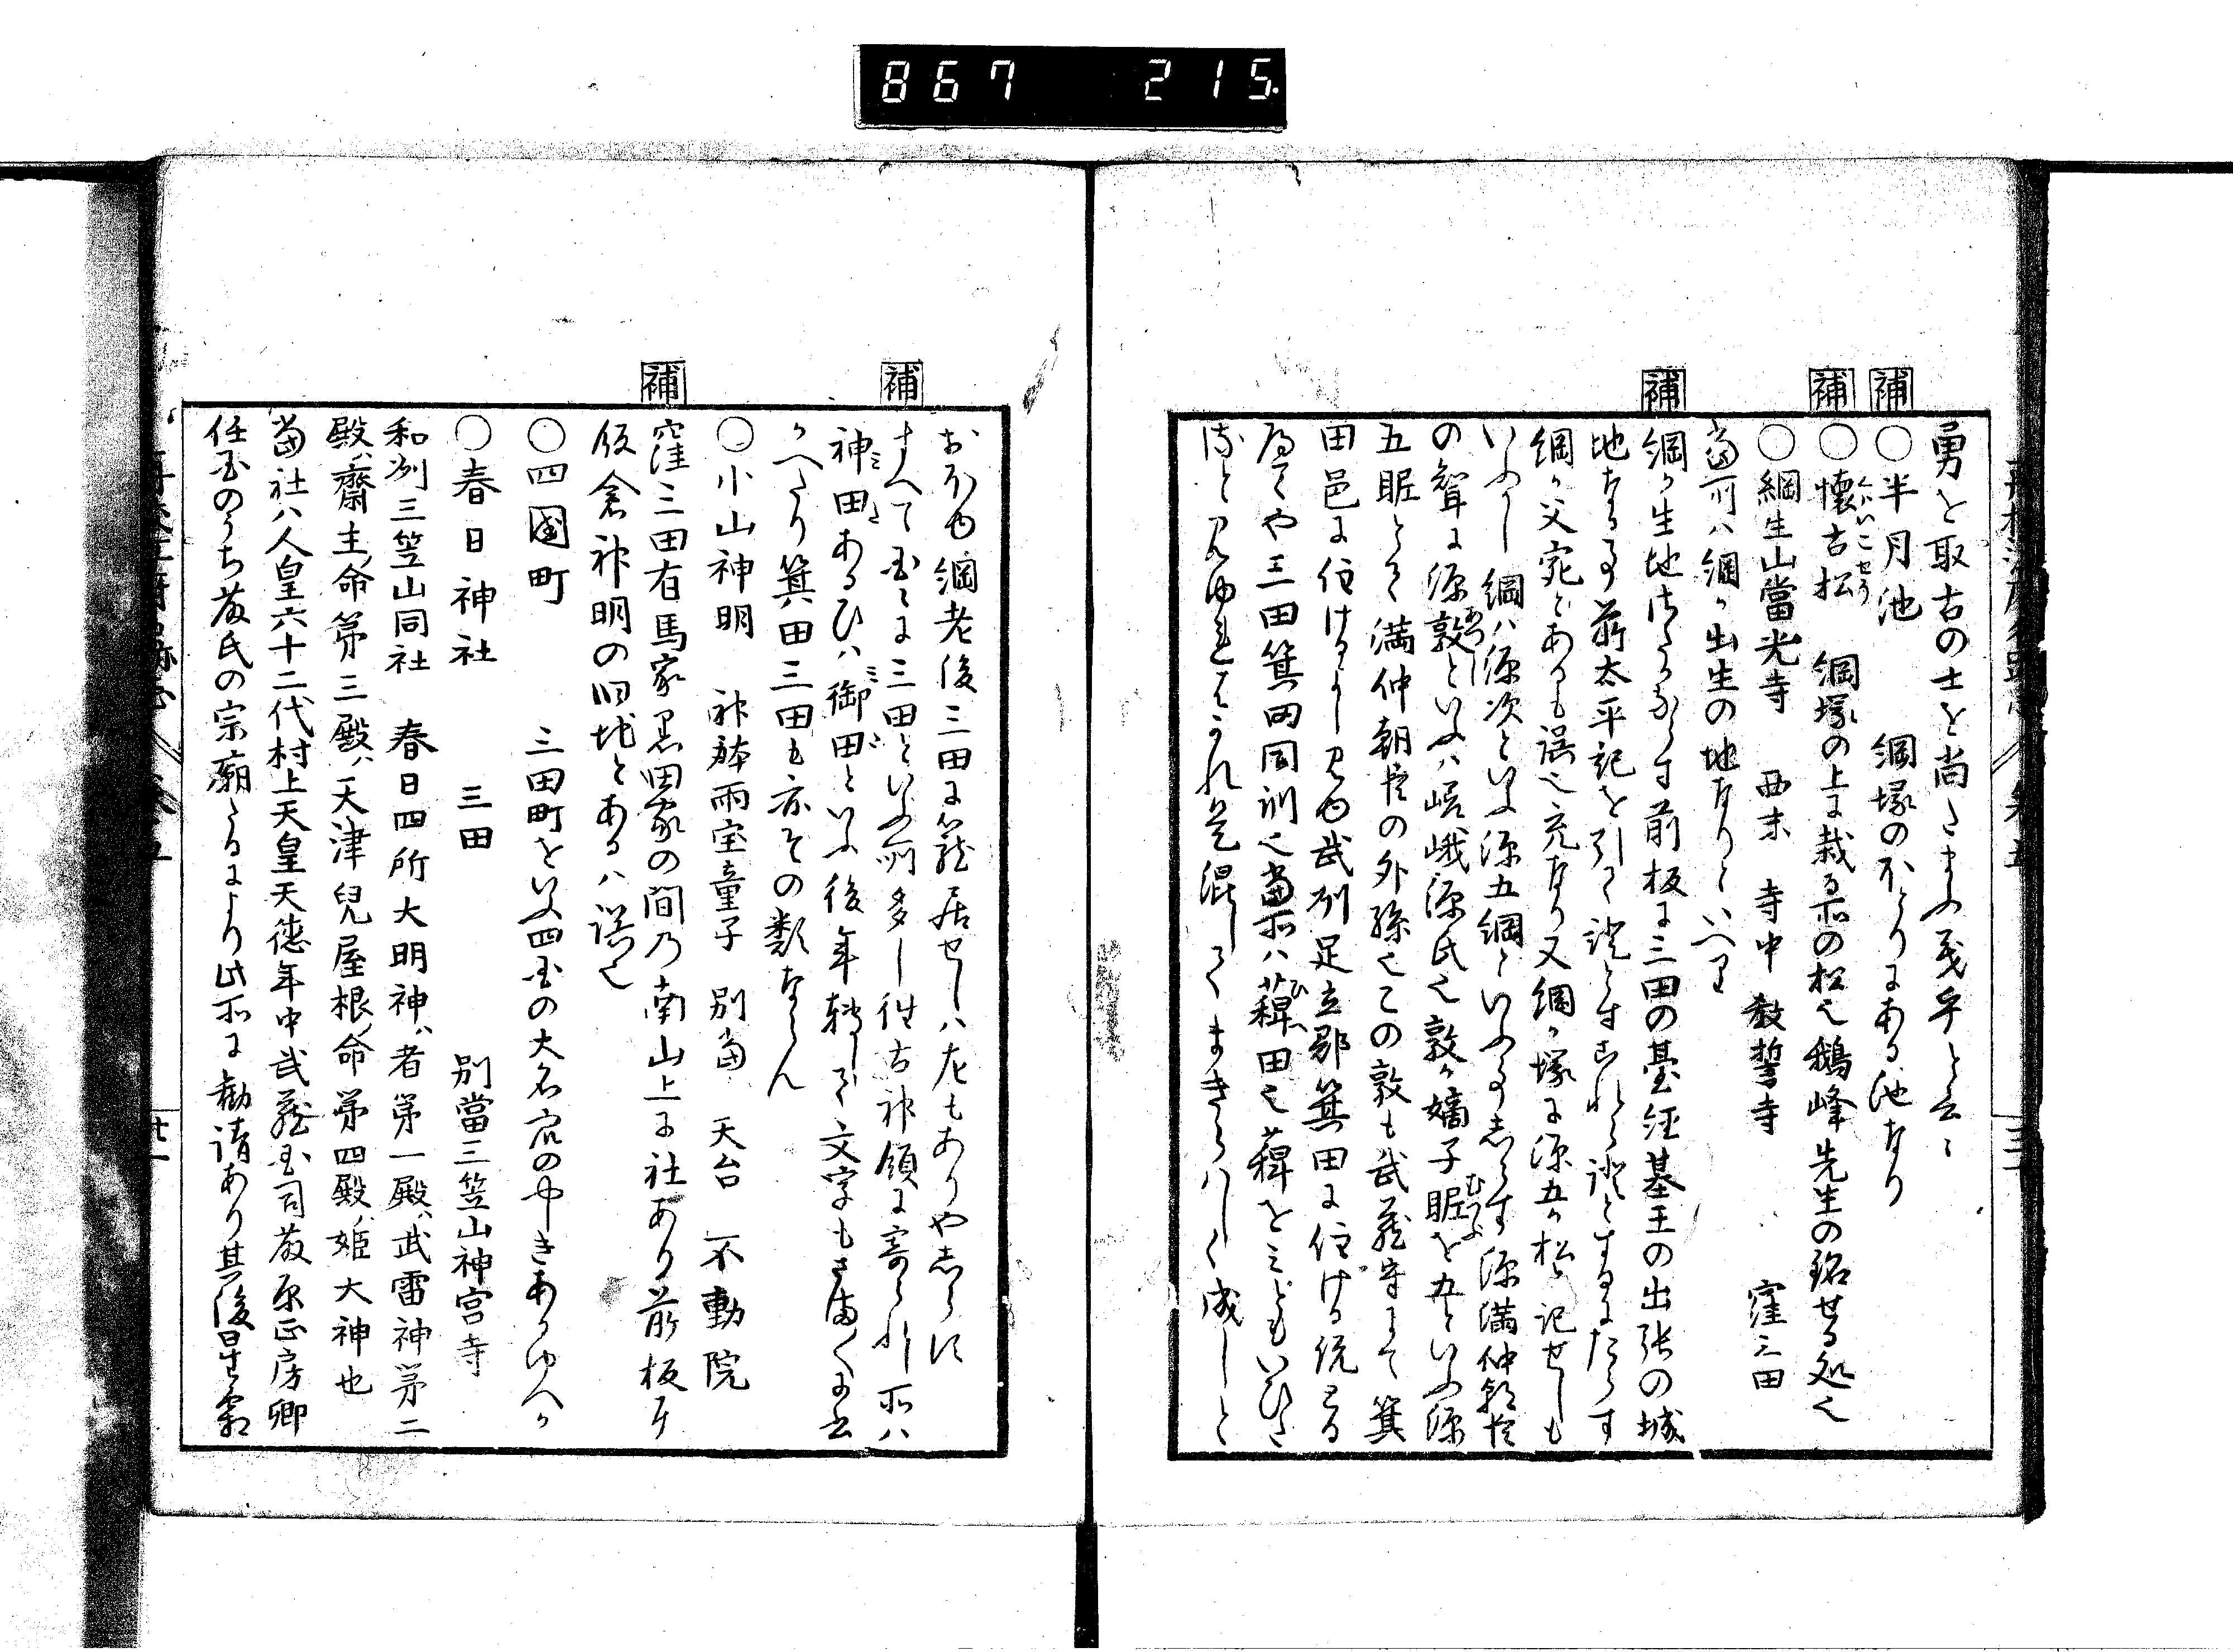 867 215.
勇を取古の士を尚たまふ義乎と云々
補
○半月池 綱塚のほとりにある池なり
補
○懐古松 綱塚の上に栽る所の松也鵝峰先生の銘せる処也
くわいこせう
○綱生山當光寺 西末 寺中 教誓寺 窪三田
當所ハ綱か出生の地なりといへり
補
綱か生地はさたかならす前板に三田の臺経基王の出張の城
地なる事前太平記を引て證とすされと證とするにたらす
綱か父宛とあるも誤也充なり又綱か塚に源五か松と記せしも
いふかし綱ハ源次といふ源五綱といふ事しらす源満仲朝臣
の聟に源敦といふハ嵯峨源氏也敦か嫡子眤を五といふ源
あつし
むつふ
五眤とて満仲朝臣の外孫也この敦も武蔵守にて箕
田邑に住けるよし見ゆ武刕足立郡箕田に住ける
や三田箕田同訓也當所ハ薭田也薭をミともいひ
ひ
と見ゆれ混してまきらハしく成しと
おほゆ綱老後三田に籠居せしハ左もありやしらす
補
すへて国々に三田といふ所多し往古神領に寄られし所ハ
神田あるひハ御田といふ後年轉して文字もさまくに書
ミた
ミた
かへたり箕田三田も亦その類ならん
○小山神明 神躰雨宝童子 別當 天台 不動院
補
窪三田有馬家黒田家の間乃南山上に社あり前板に
飯倉神明の旧地とあるハ誤也
○四國町 三田町を以四国の大名衆のやしきあるゆへか
○春日神社 三田 別當三笠山神宮寺
和州三笠山同社 春日四所大明神ハ者第一殿ハ武雷神第二
殿ハ齋主ノ命第三殿ハ天津兒屋根ノ命第四殿ハ姫大神也
當社ハ人皇六十二代村上天皇天徳年中武蔵国司藤原正房卿
任国のうち藤氏の宗廟たるにより此所に勧請あり其後星霜
廿一